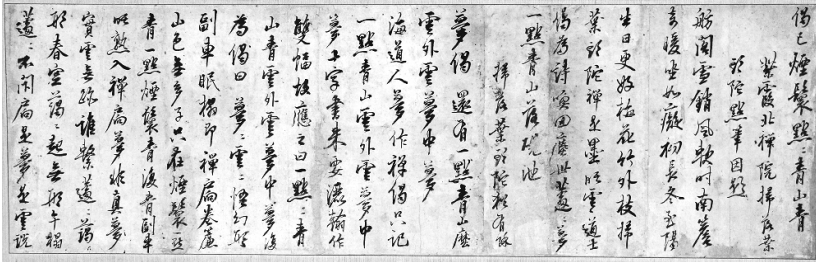 偈已煙鬟點點青山青
紫霞北禪院掃落葉
頭陀點筆因題
舫閣雪銷風軟時南簷
炙暖坐如癡初長冬至陽
生日更好梅花竹外枝掃
葉頭陀禪是墨眠雲道士
偈為詩田廬世蘧蘧夢
一點青山落硯池
掃落葉頭陀雜有
夢偈還有一點青山麼
雲外雲夢中夢
海道人夢作禪偈只記
一點青山雲外雲夢中
夢十字書來要潑翰作
雙幅故應之曰一點點青
山青雲外雲夢中夢復
為偈曰夢夢雲雲悟幻堅
副車眠榻即禪扃卷簾
山色無多子只在煙鬟一點
青一點煙鬟青復青副車
眠熟入禪扃夢非真夢
實雲無跡誰繫蘧蘧藹藹
形春空藹藹起無形午榻
蘧蘧不閉扃是夢是雲說